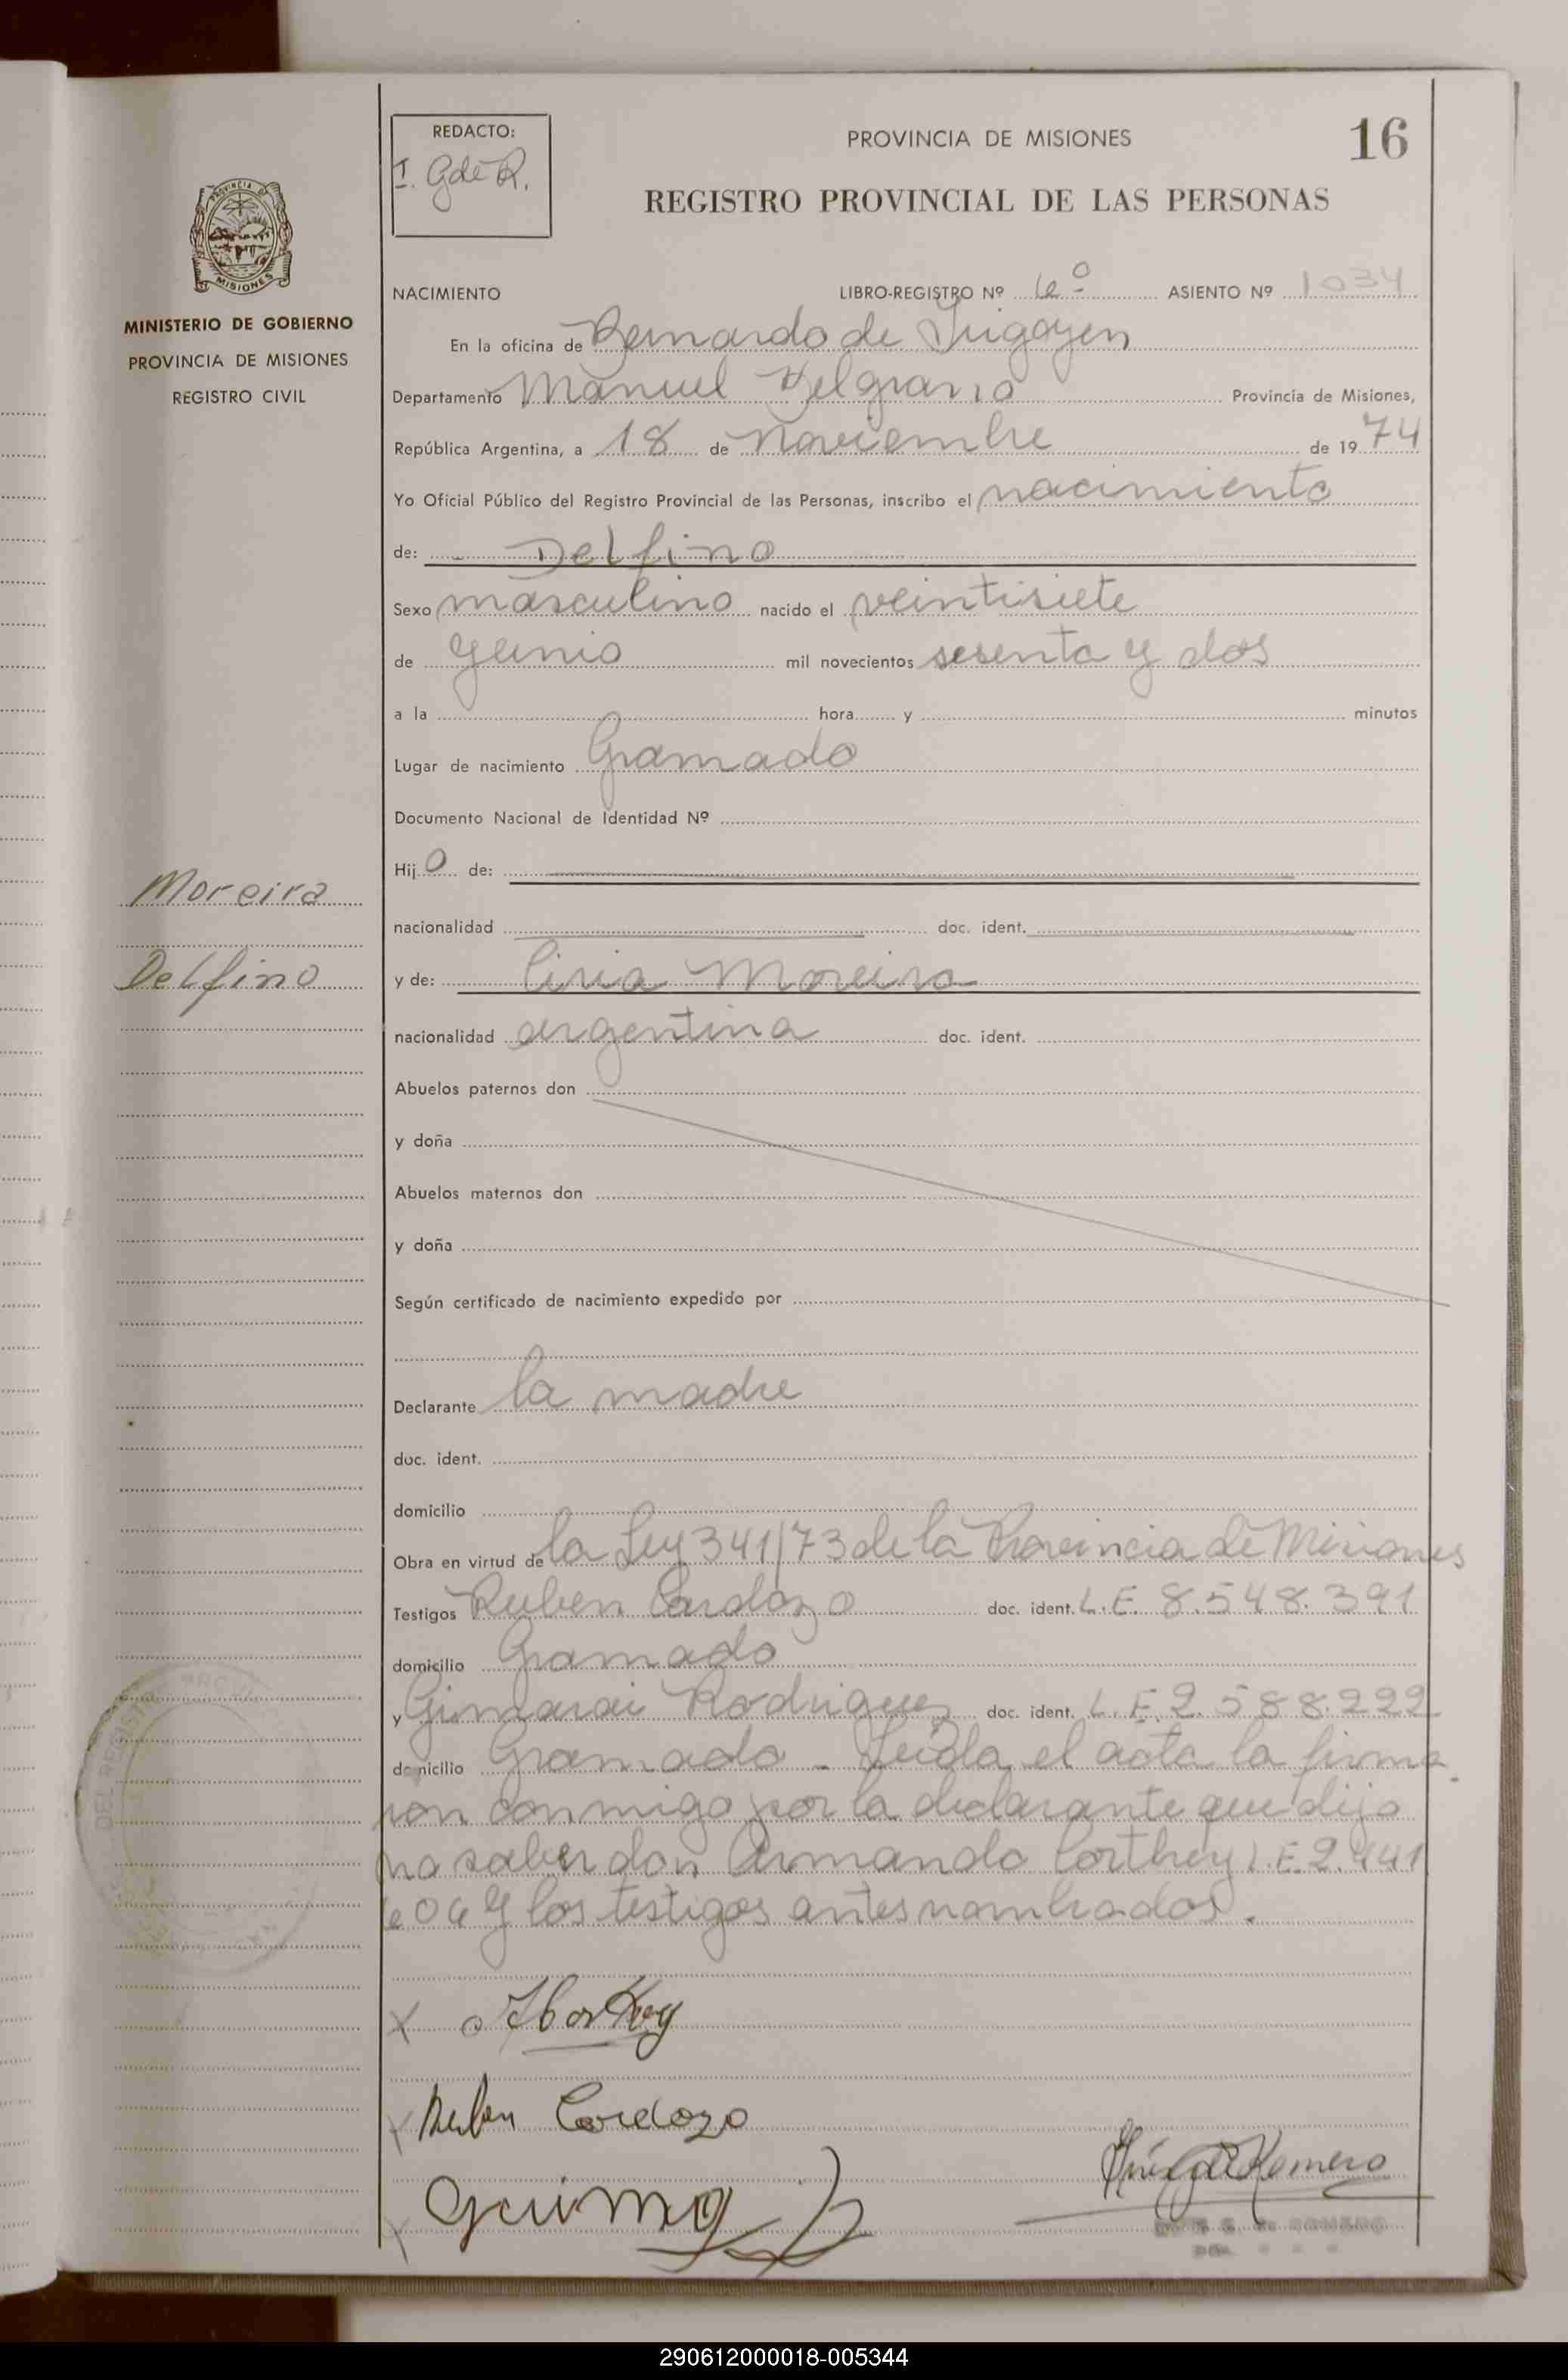 16
REDACTO:
I. G de R.
PROVINCIA DE MISIONES
REGISTRO PROVINCIAL DE LAS PERSONAS
PROVINCIA DE
MISIONES
MINISTERIO DE GOBIERNO
PROVINCIA DE MISIONES
REGISTRO CIVIL
NACIMIENTO LIBRO-REGISTRO Nº 6º ASIENTO Nº 1034
En la oficina de Bernardo de Irigoyen
Departamento Manuel Belgrano Provincia de Misiones,
República Argentina, a 18 de Noviembre de 1974
Yo Oficial Público del Registro Provincial de las Personas, inscribo el nacimiento
de: Delfino
Sexo masculino nacido el veintisiete
de Junio mil novecientos sesenta y dos
a la hora y minutos
Lugar de nacimiento Gramado
Documento Nacional de Identidad Nº
Hijo de:
Moreira
nacionalidad doc. ident.
Delfino
y de: Ciria Moreira
nacionalidad argentina doc. ident.
Abuelos paternos don
y doña
Abuelos maternos don
y doña
Según certificado de nacimiento expedido por
Declarante la madre
doc. ident.
domicilio
Obra en virtud de la Ley 341/73 de la Provincia de Misiones
Testigos Ruben Cardozo doc. ident. L.E. 8.548.391
domicilio Gramado
y Gimarai Rodriguez doc. ident. L.E. 2.588.222
domicilio Gramado - Leida el acta la firma
ron conmigo por la declarante que dijo
no saber don Armando Corthey L.E 2.441
606 y los testigos antes nombrados.
Ruben Cardozo
290612000018-005344